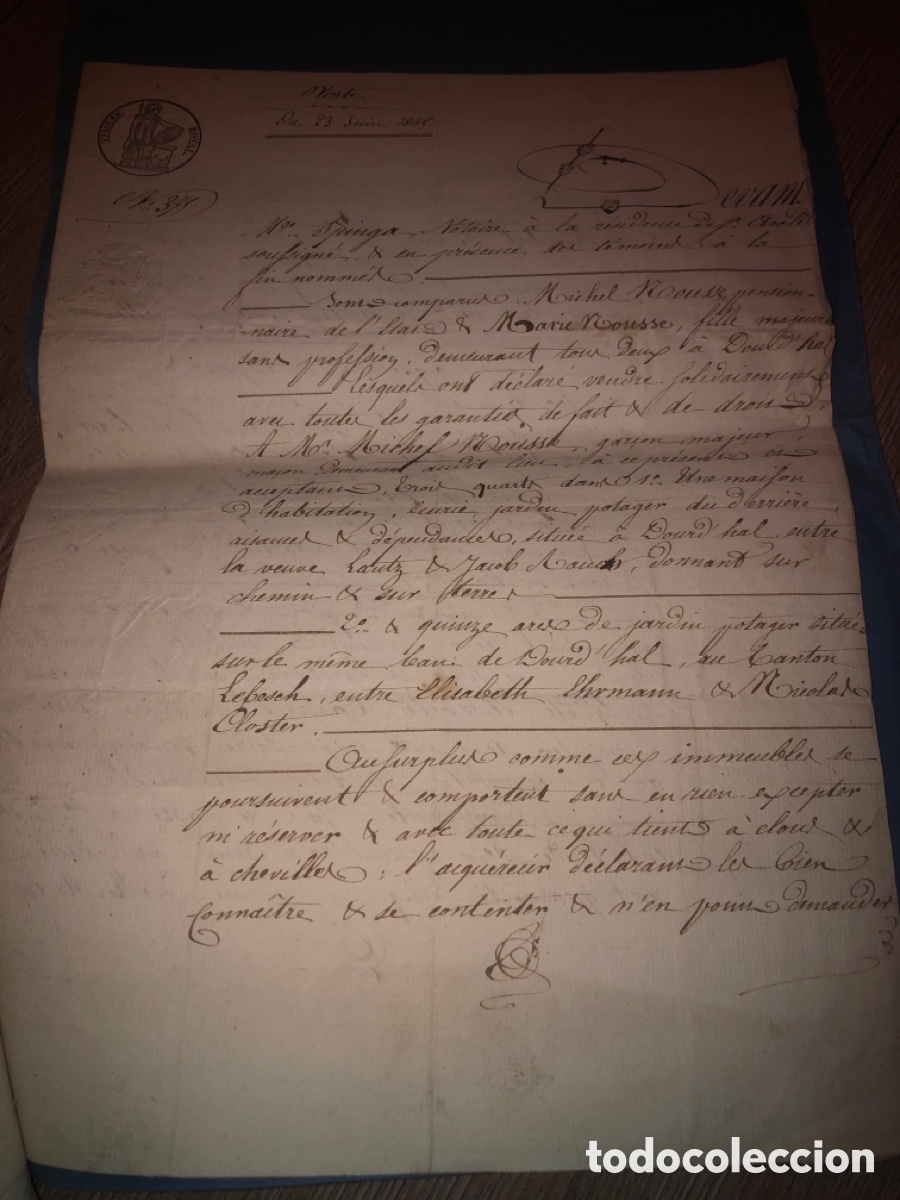 Vente
Du 23 Juin 1845.
TIMBRE ROYAL
No. 375
Devant
Me. Spinga, Notaire à la residence de St. Avold
soussigné, & en présence des témoins à la
fin nommés.
Sont comparus Michel Nousse, pension-
naire de l'Etat & Marie Nousse, fille majeure
sans profession, demeurant tous deux à Dourd'hal
Lesquels ont déclaré vendre solidairement
avec toutes les garanties de fait & de droit
A Mr. Michel Nousse garçon majeur,
maçon demeurant audit lieu, à ce présent et
acceptant, trois quarts dans 1o. Une maison
d'habitation, écurie, jardin potager du derrière,
aisances & dépendances, située à Dourd'hal, entre
la veuve Lautz & Jacob Rauch, donnant sur
chemin & sur terres
2o. & quinze ares de jardin potager situés
sur le même ban de Dourd'hal, au Canton
Lebesch, entre Elisabeth Ehrmann & Nicolas
Closter.
Au surplus comme ces immeubles se
poursuivent & comportent sans en rien excepter
ni réserver & avec toute ce qui tient à clous &
à chevilles; l'acquéreur déclarant les bien
connaître & se contenter & n'en point demander
todocoleccion